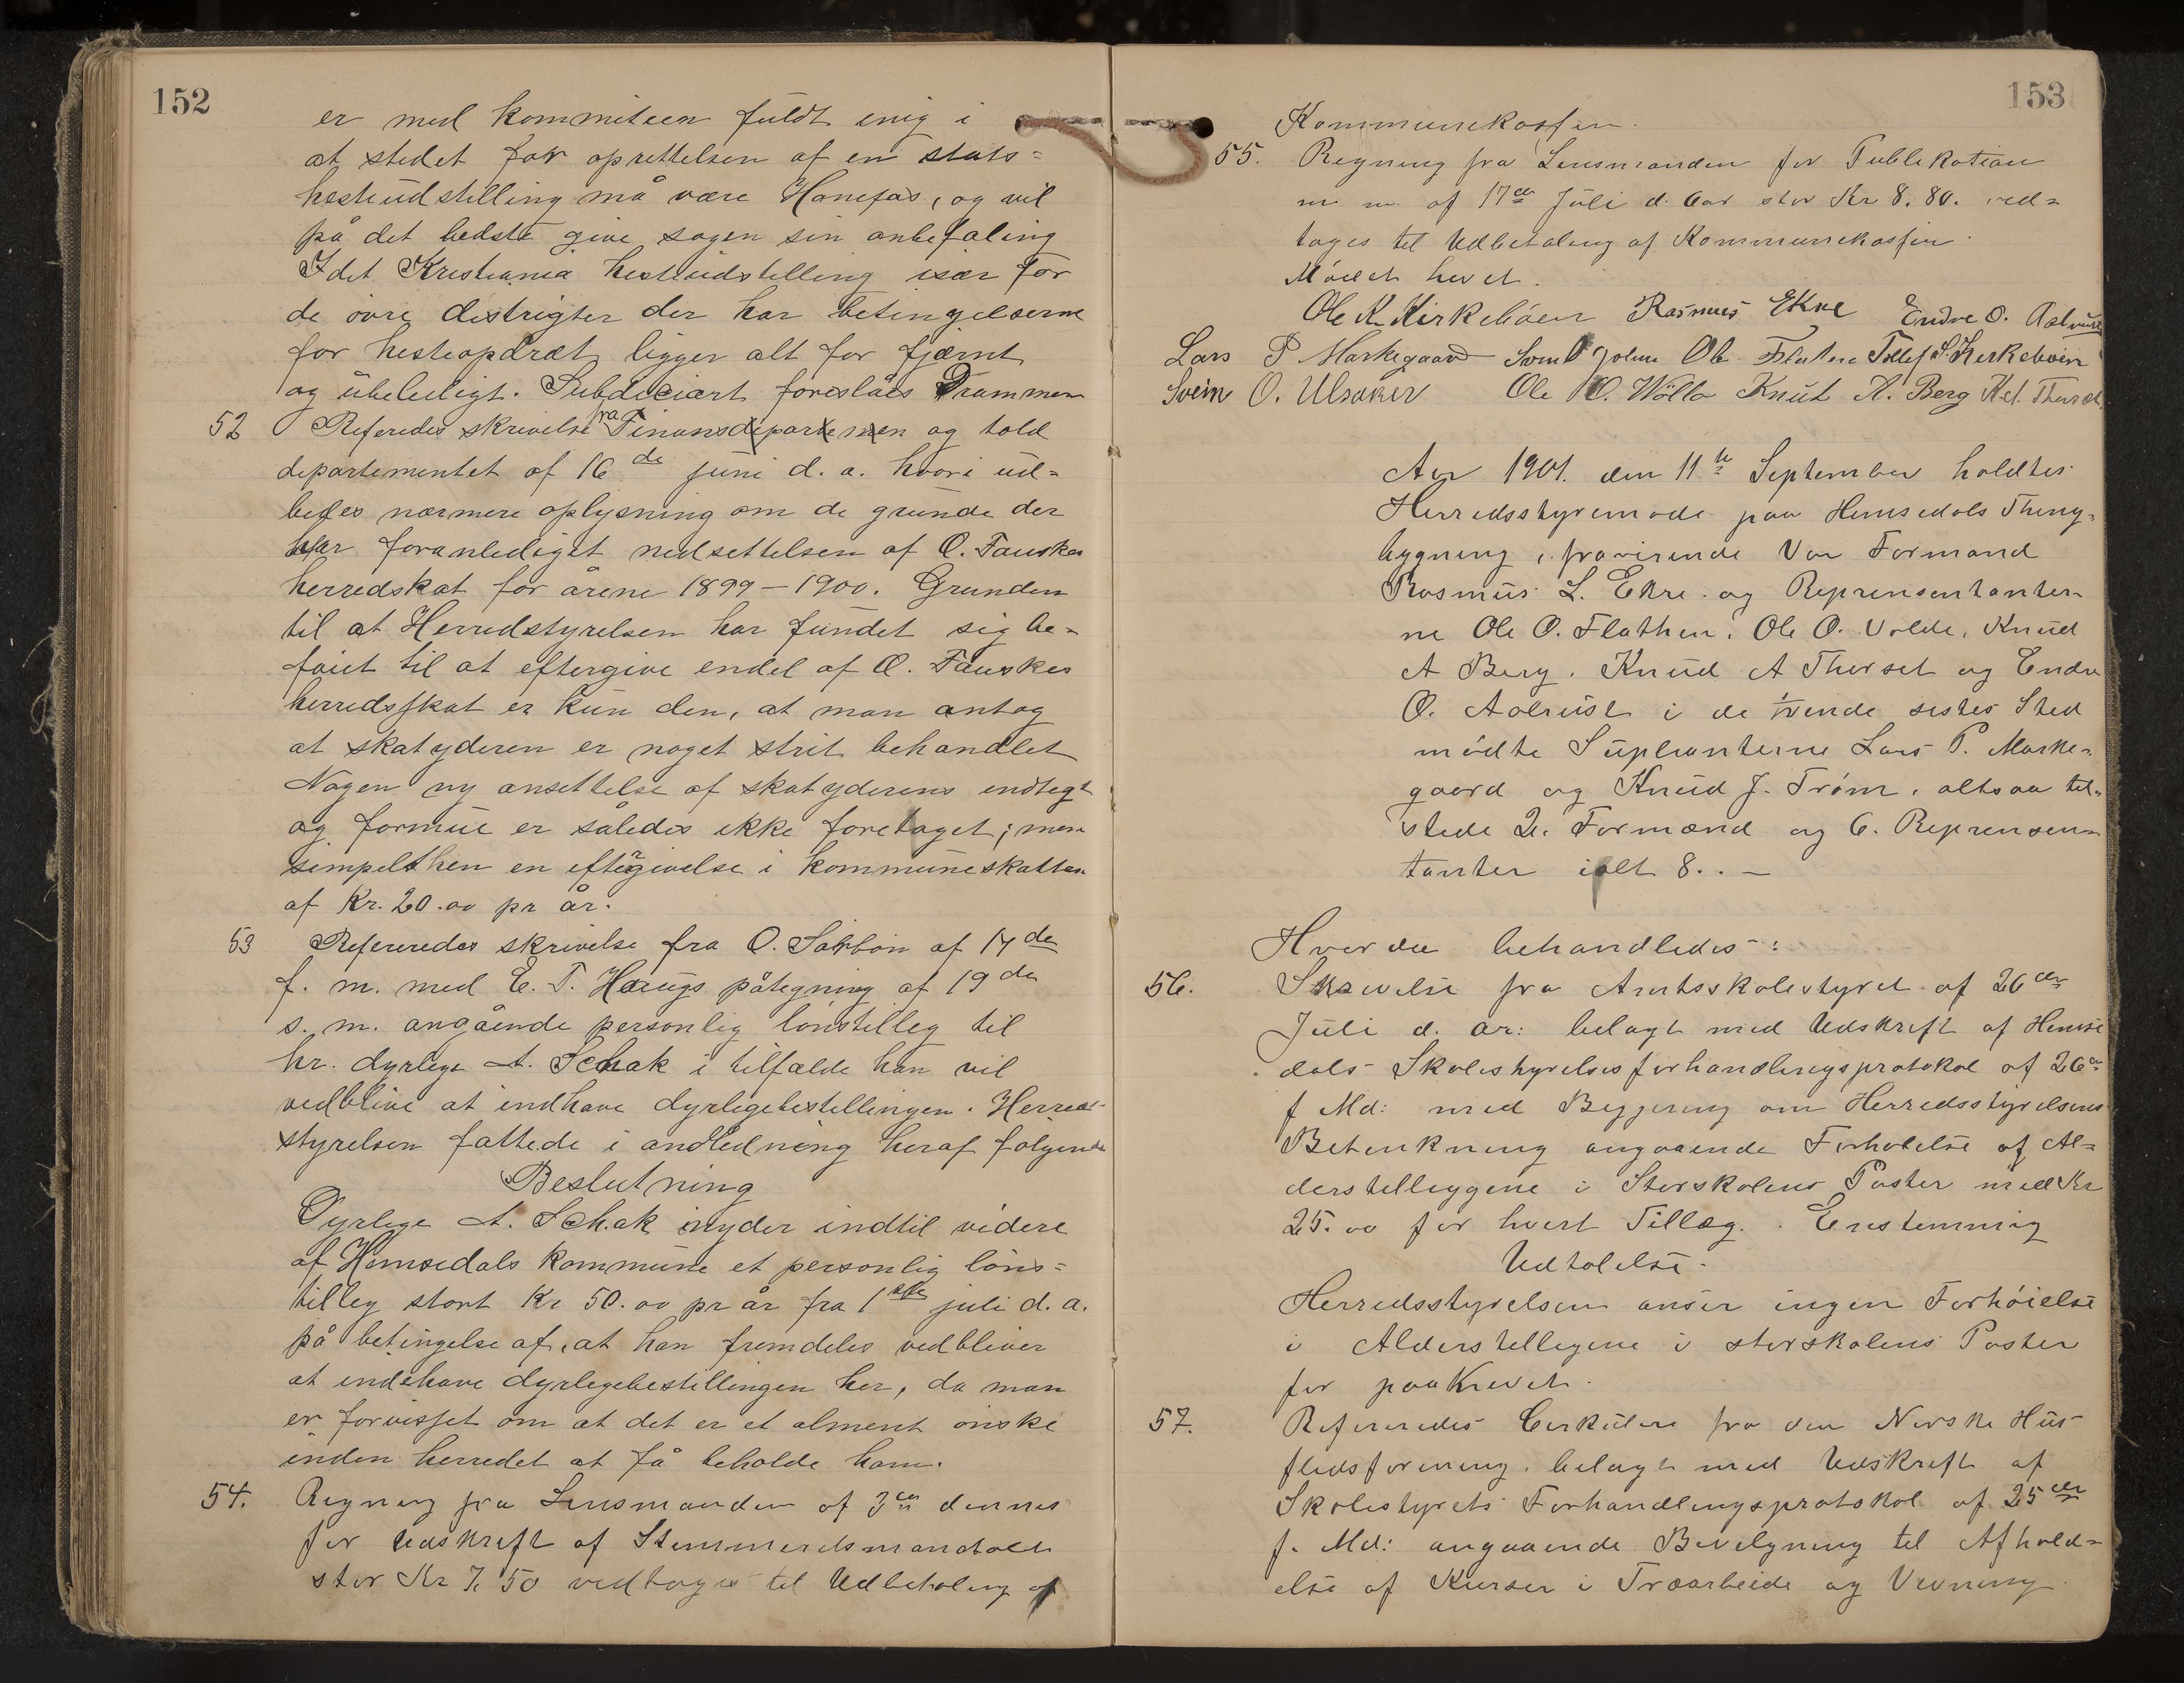 152
er med kommiteen fuldt enig i
at stedet for oprettelsen af en stats=
hesteudstilling må være Hønefos, og vil
på det bedste give sagen sin anbefaling
Idet Kristiania hesteudstilling især for
de øvre distrigter der har betingelserne
for hesteopdræt ligger alt for fjærnt
og übeleiligt. Subdiciært foreslåes Drammen
52 Referedes skrivelse fra Finansdepartemen og told
departementet af 16 de juni d. a. hvori ud=
bedes nærmere oplysning om de grunde der
har foranlediget nedsettelsen af O. Fauskes
herredskat for årene 1899-1900. Grunden
til at Herredstyrelsen har fundet sig be=
føiet til at eftergive endel af O. Fauskes
herredsskat er kun den, at man antog
at skatyderen er noget strit behandlet
Nogen ny ansettelse af skatyderens indtegt
og formue er således ikke foretaget; men
simpelthen en eftergivelse i kommuneskatten
af Kr. 20.00 pr år.
53 Refereredes skrivelse fra O. af 17 de
f. m. med E. T. Haugs påtegning af 19 de
s. m. angående personlig lønstilleg til
hr. dyrlege A. Schak i tilfælde han vil
vedblive at indhave dyrlegebestillingen. Herreds-
styrelsen fattede i andledning heraf følgende
Beslutning
Dyrlege A. Schak nyder indtil videre
af Hemsedals kommune et personlig løns=
tilleg stort Kr 50.00 pr år fra 1ste juli d. a.
på betingelse af, at han fremdeles vedbliver
at indehave dyrlegebestillingen her, da man
er forvisset om at det er et alment ønske
inden herredet at få beholde ham.
54. Regning fra Lensmanden af 3die dennes
for Udskrift af Stemmeretsmandtallet
stor Kr 7.50 vedtoges til Udbetaling af
153
Kommunekassen.
55. Regning fra Lensmanden for Publikation
m m. af 17de Juli d. Aar stor Kr 8.80. ved=
toges til Udbetaling af Kommunekassen.
Mödet hevet.
Ole K. Kirkebøen Rasmus Ekre Endre O. Aalrust
Lars P Markegaard Svend Ole Flaten Tollef S. Kirkebøen
Svein O. Ulsaker Ole O. Wølla Knut A. Berg Kd. Thorset
Aar 1901. den 11te September holdtes
Herredsstyremøde paa Hemsedals Thing=
bygning, præsirende Vou Formand
Rasmus L. Ekre. og Reprensentanter=
ne Ole O. Flathen, Ole O. Volde, Knud
A Berg. Knud A Thorset og Endre
O. Aalrust i de tvende sestes Sted
mødte Süpleanterne Lars P. Marke=
gaard og Knud J. Trøm, altsaa til=
stede 2. Formænd og 6. Reprensen=
tanter ialt 8.. -
Hvor da behandledes:
56. Skrivelse fra Amtsskolestyret af 26de
Juli d. Ar: belagt med Udskrift af Hemse
dals Skolestyrelses forhandlingsprotokol af 26de
f Md: med Begjering om Herredsstyrelsens
Betenkning angaaende Forhøielse af Al=
derstelleggene i Storskolens Poster med Kr
25.00 for hvert Tillæg. Enstemmig
Udtalelse.
Herredsstyrelsen anser ingen Forhøielse
i Alderstellegene i storskolens Poster
for paakrevet.
57. Refereredes Cirkulære fra den Norske Hus
flidsforening. belagt med Udskrift af
Skolestyrets Forhandlingsprotokol af 25de
f. Md: angaaende Bevilgning til Afhold=
else af Kurser i Træarbeide og Vevning